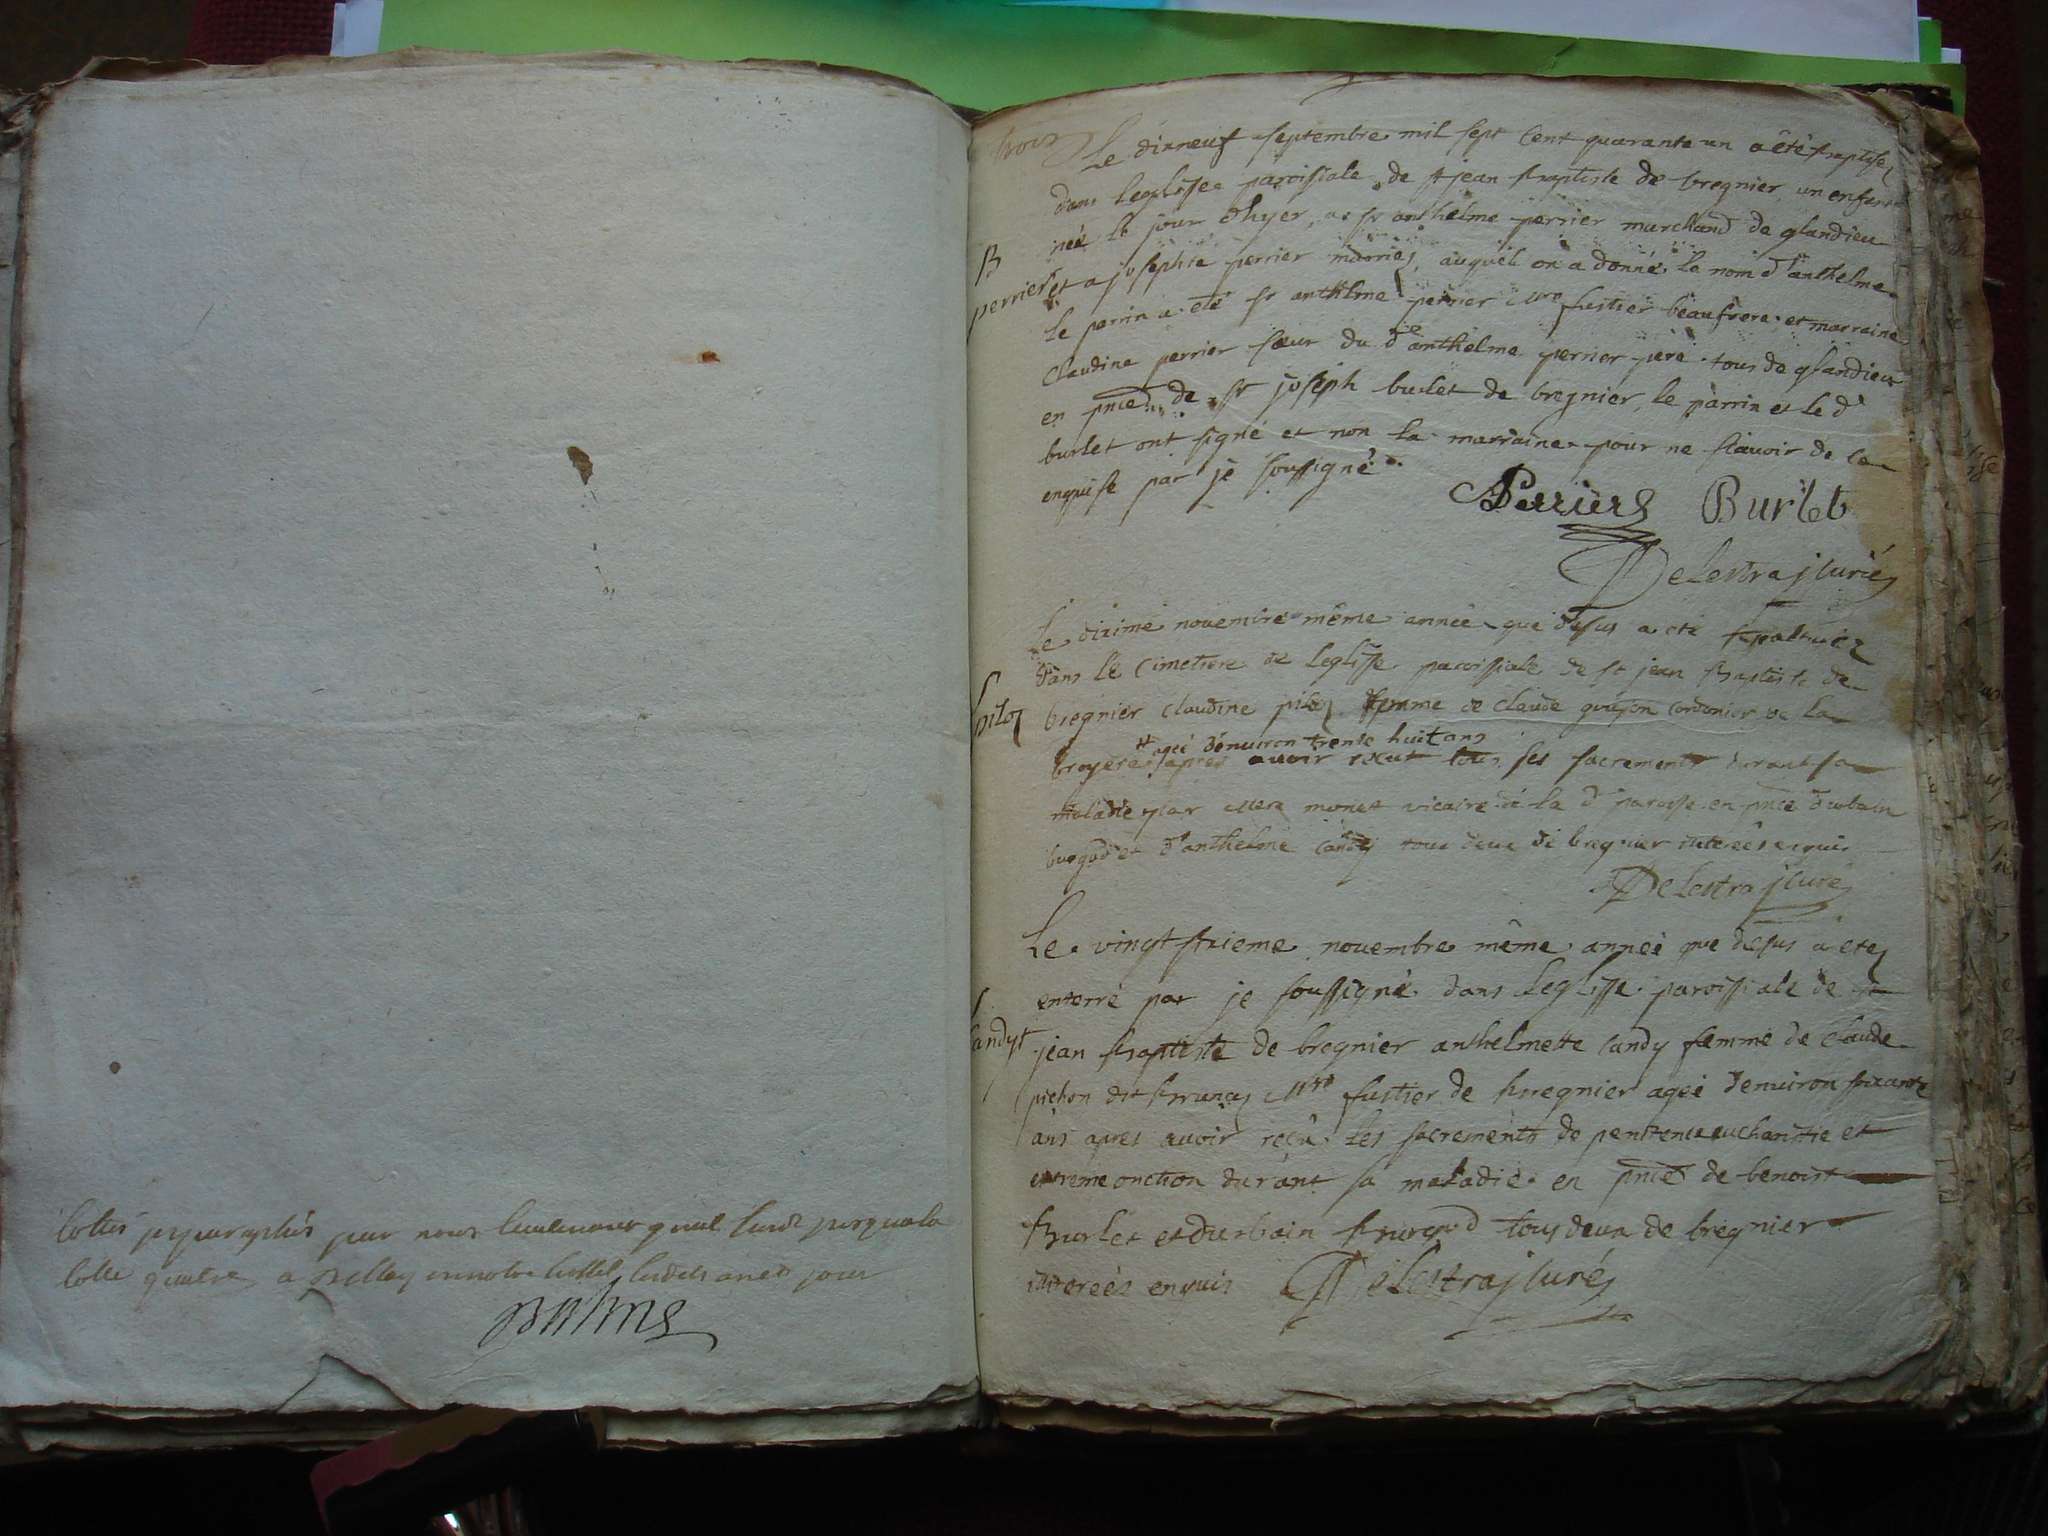 Cottés et paraphés par nous lieutenant gnal susd jusqua la
cotte quatre a Belley en notre hostel lesdits an et jour
Balme
trois
Le dixneuf septembre mil sept cent quarante un a été baptisez
dans leglise paroissiale de st jean baptiste de bregnier un enfant
neé le jour dhyer, a sr anthelme perrier marchand de glandieu
B
perrier
et a josephte perrier marriés, auquel on a donné le nom d'anthelme
le parrin a eté sr anthelme perrier mre fustier beaufrere et marraine
claudine perrier sœur du d anthelme perrier pere tous de glandieu
en pnce de sr joseph burlet de bregnier, le parrin et le d
burlet ont signé et non la marraine pour ne sçavoir de ce
enquise par je soussigné
Perriers Burlet
Delestraz curés
Le dixime novembre même année que desus a eté sepulturez
dans le cimetiere de leglisse paroissiale de st jean Baptiste de
piloz
bregnier claudine piloz femme de claude gujon cordonier de la
ageé d'environ trente huit ans
broyere apres avoir receut tous ses sacrements durant sa
maladie par mere monet vicaire de la d paroisse en pnce d'urbain
burgod et d'anthelme candy tous deux de bregnier illitereés enquis
Delestraz curés
Le vingt sixieme novembre même anneé que desus a etez
enterré par je soussigné dans leglisse paroissiale de st
S
candyt
jean baptiste de bregnier anthelmette candy femme de claude
pichon dit brunaz mre fustier de bregnier ageé d'environ soixante
ans apres avoir reçu les sacrements de penitence eucharistie et
extreme onction durant sa maladie en pnce de benoist
Burlet et d'urbain burgod tous deux de bregnier
illitereés enquis Delestraz curés